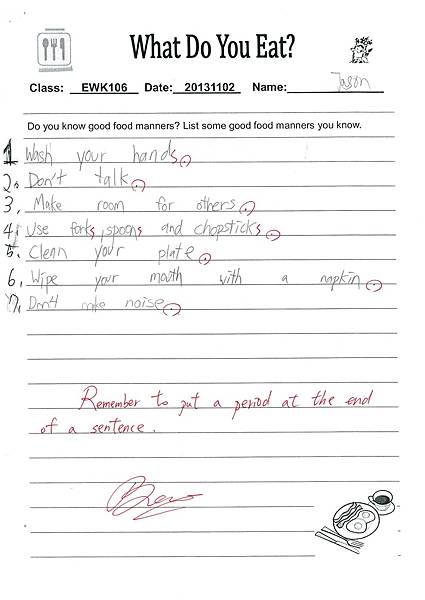 What Do You Eat?
Class: EWK106 Date: 20131102 Name: Jason
Do you know good food manners? List some good food manners you know.
1 Wash your hands.
2. Don't talk.
3. Make room for others.
4. Use forks, spoons and chopsticks.
5. Clean your plate.
6. Wipe your mouth with a napkin.
7. Don4 make noise.
Remember to put a period at the end
of a sentence.